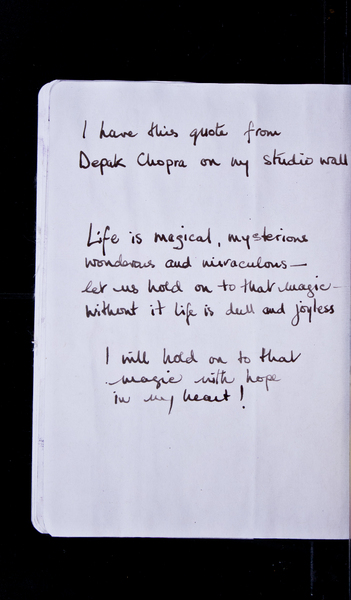 I have this quote from
Depak Chopra on my studio wall
Life is magical, mysterious
wonderous and miraculous —
let us hold on to that magic —
without it life is dull and joyless
I will hold on to that
magic with hope
in my heart!